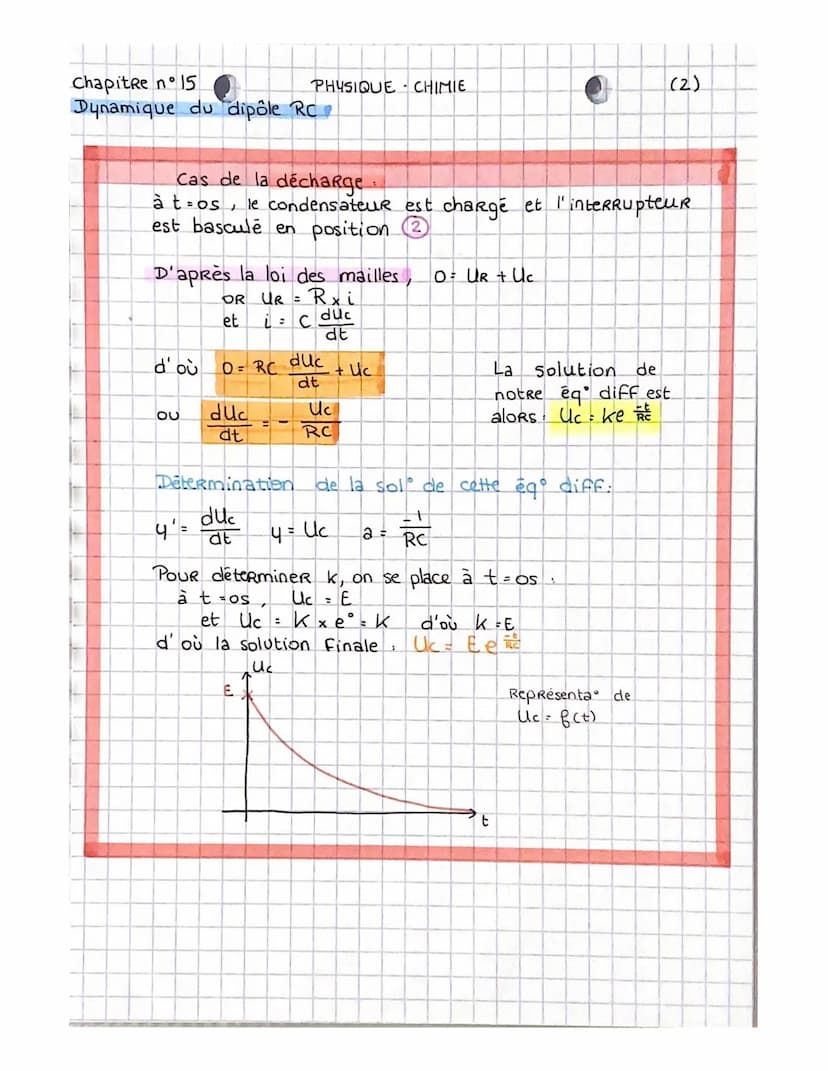 Chapitre n° 15 PHYSIQUE - CHIMIE (2)
Dynamique du dipôle RC
Cas de la décharge :
à t=0s, le condensateur est chargé et l'interrupteur
est basculé en position ②
D'après la loi des mailles, 0 = UR + Uc
OR UR = R x i
et i = C dUc/dt
d'où 0 = RC dUc/dt + Uc
ou dUc/dt = - Uc/RC
La solution de
notre éq° diff est
alors : Uc = ke^(-t/RC)
Détermination de la sol° de cette éq° diff :
y' = dUc/dt y = Uc a = -1/RC
Pour déterminer k, on se place à t=0s :
à t=0s, Uc = E
et Uc = K x e° = K d'où k = E
d'où la solution finale : Uc = E e^(-t/RC)
Uc
E
t
Représenta° de
Uc = f(t)